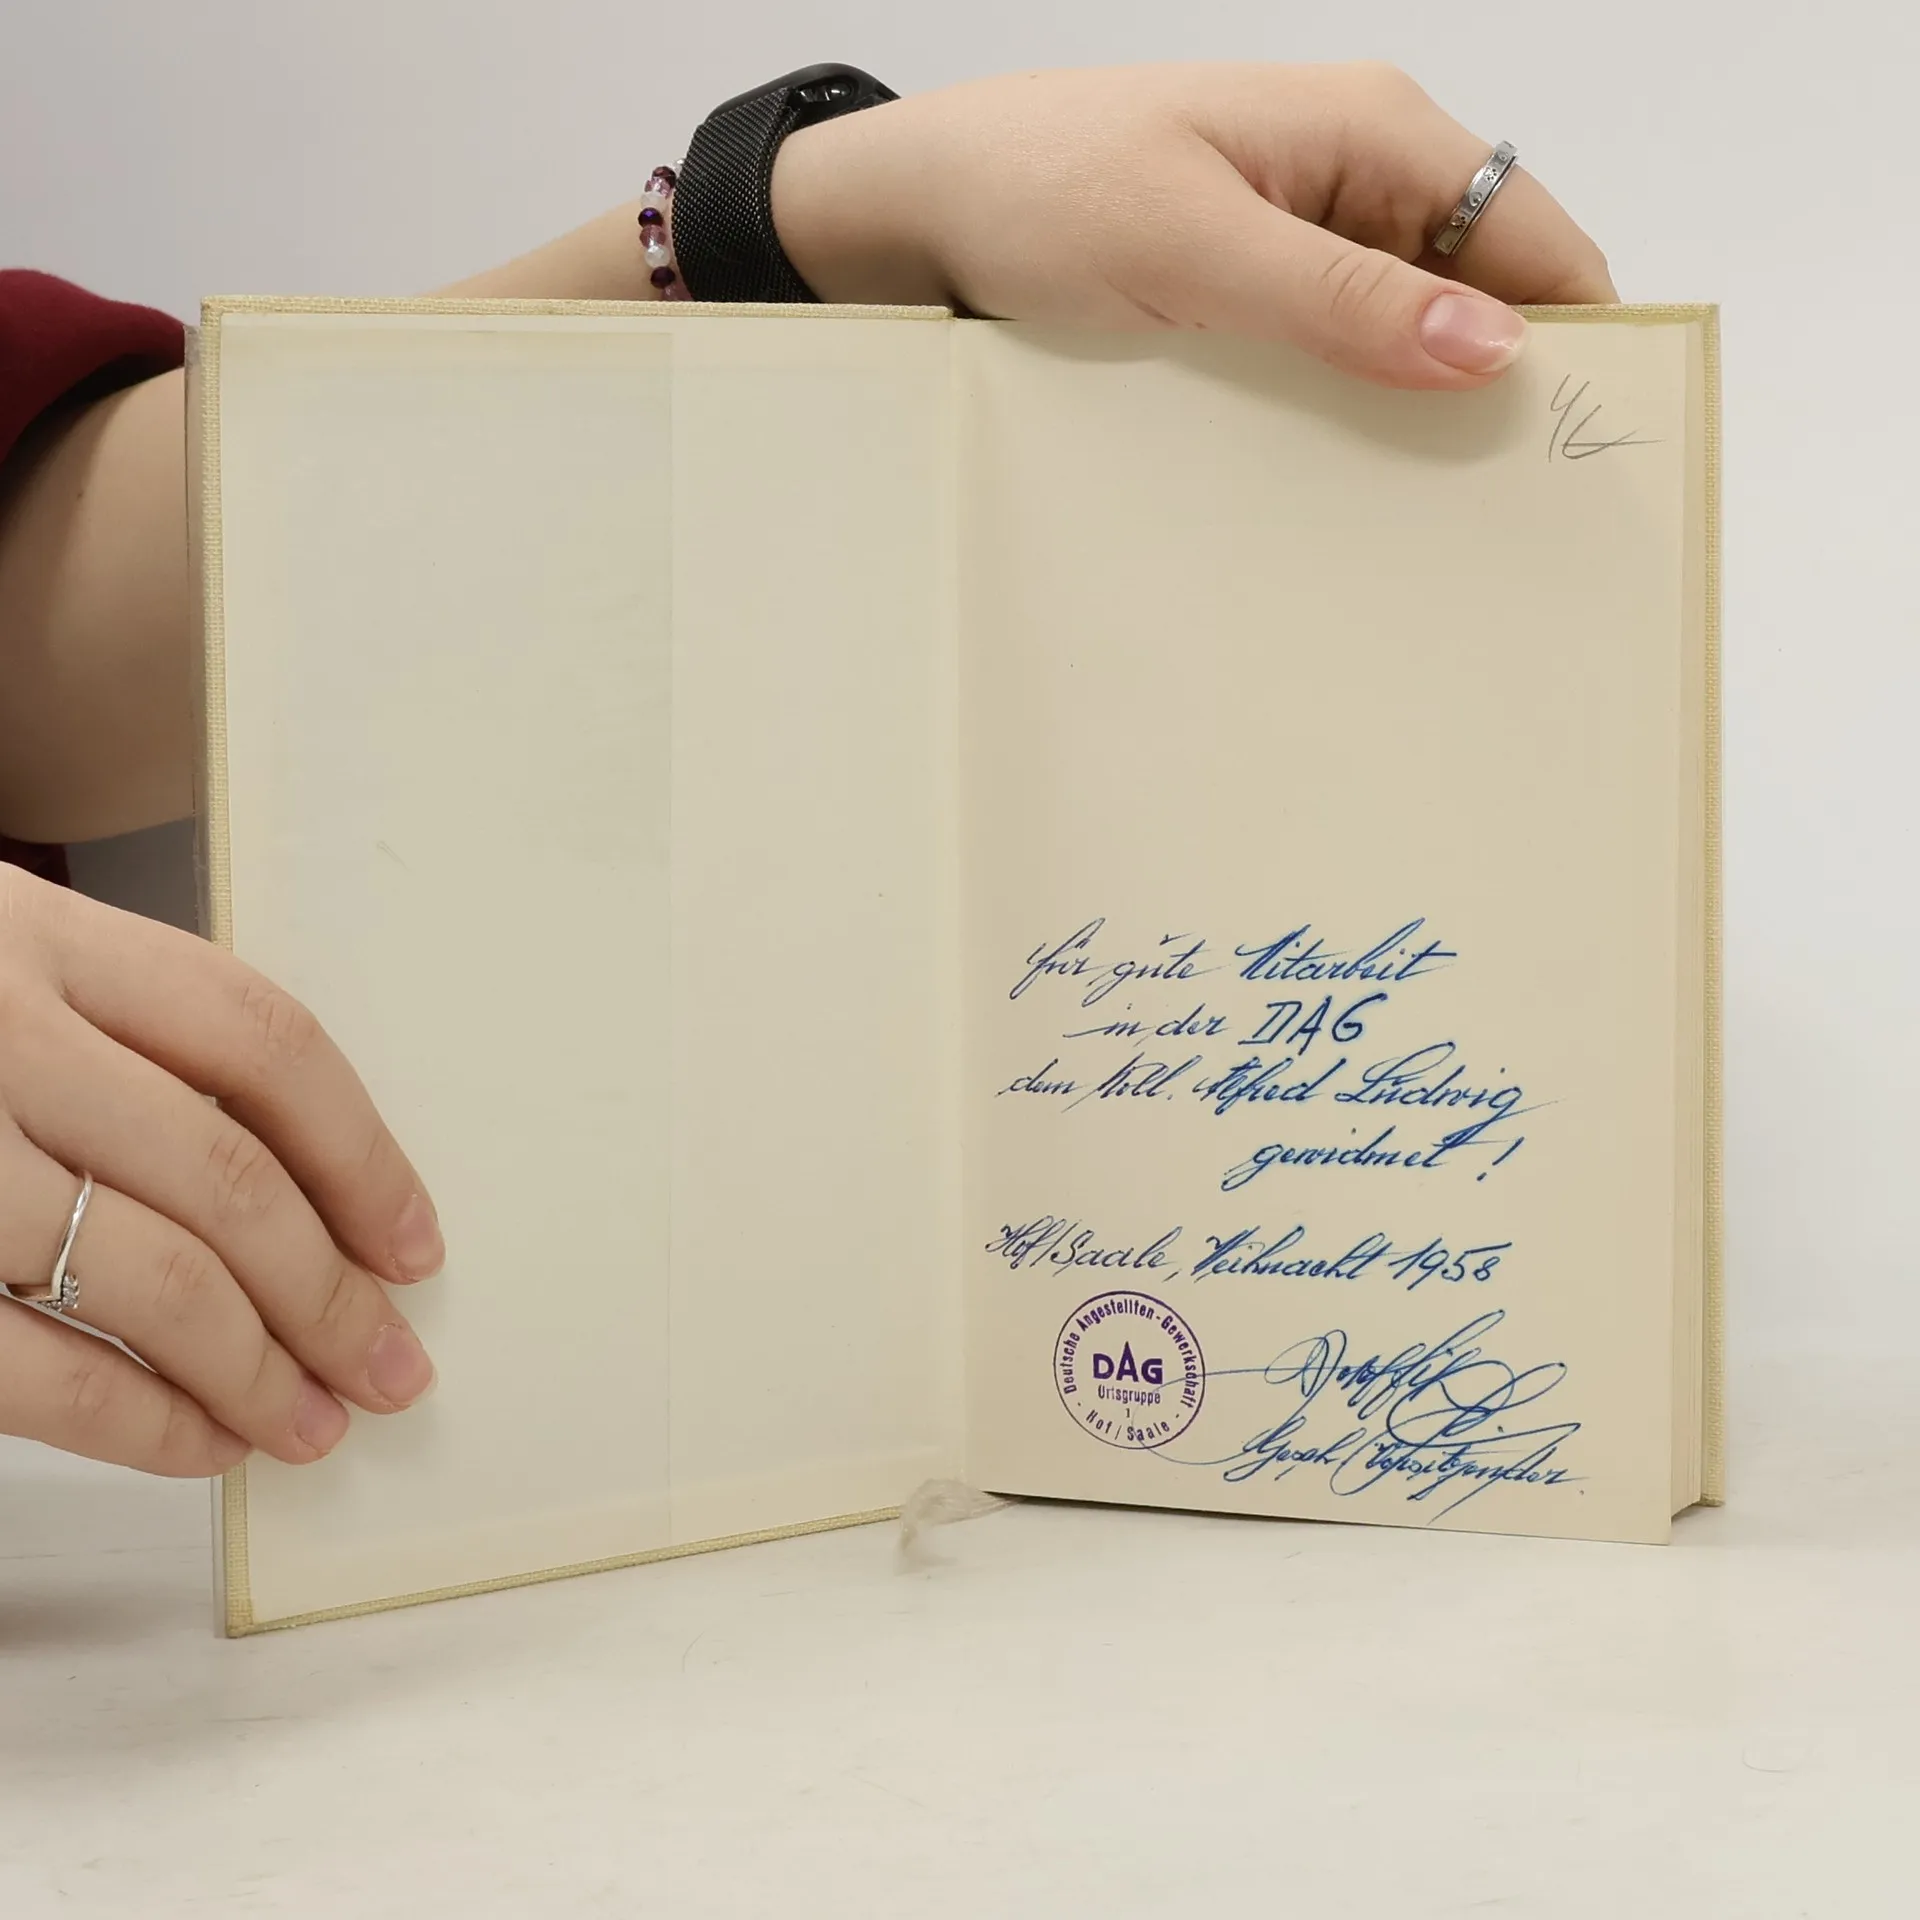 für gute Mitarbeit
in der DAG
dem Koll. Alfred Ludwig
gewidmet !
Hof/Saale, Weihnacht 1958
Deutsche Angestellten-Gewerkschaft
DAG
Ortsgruppe
1
- Hof / Saale -